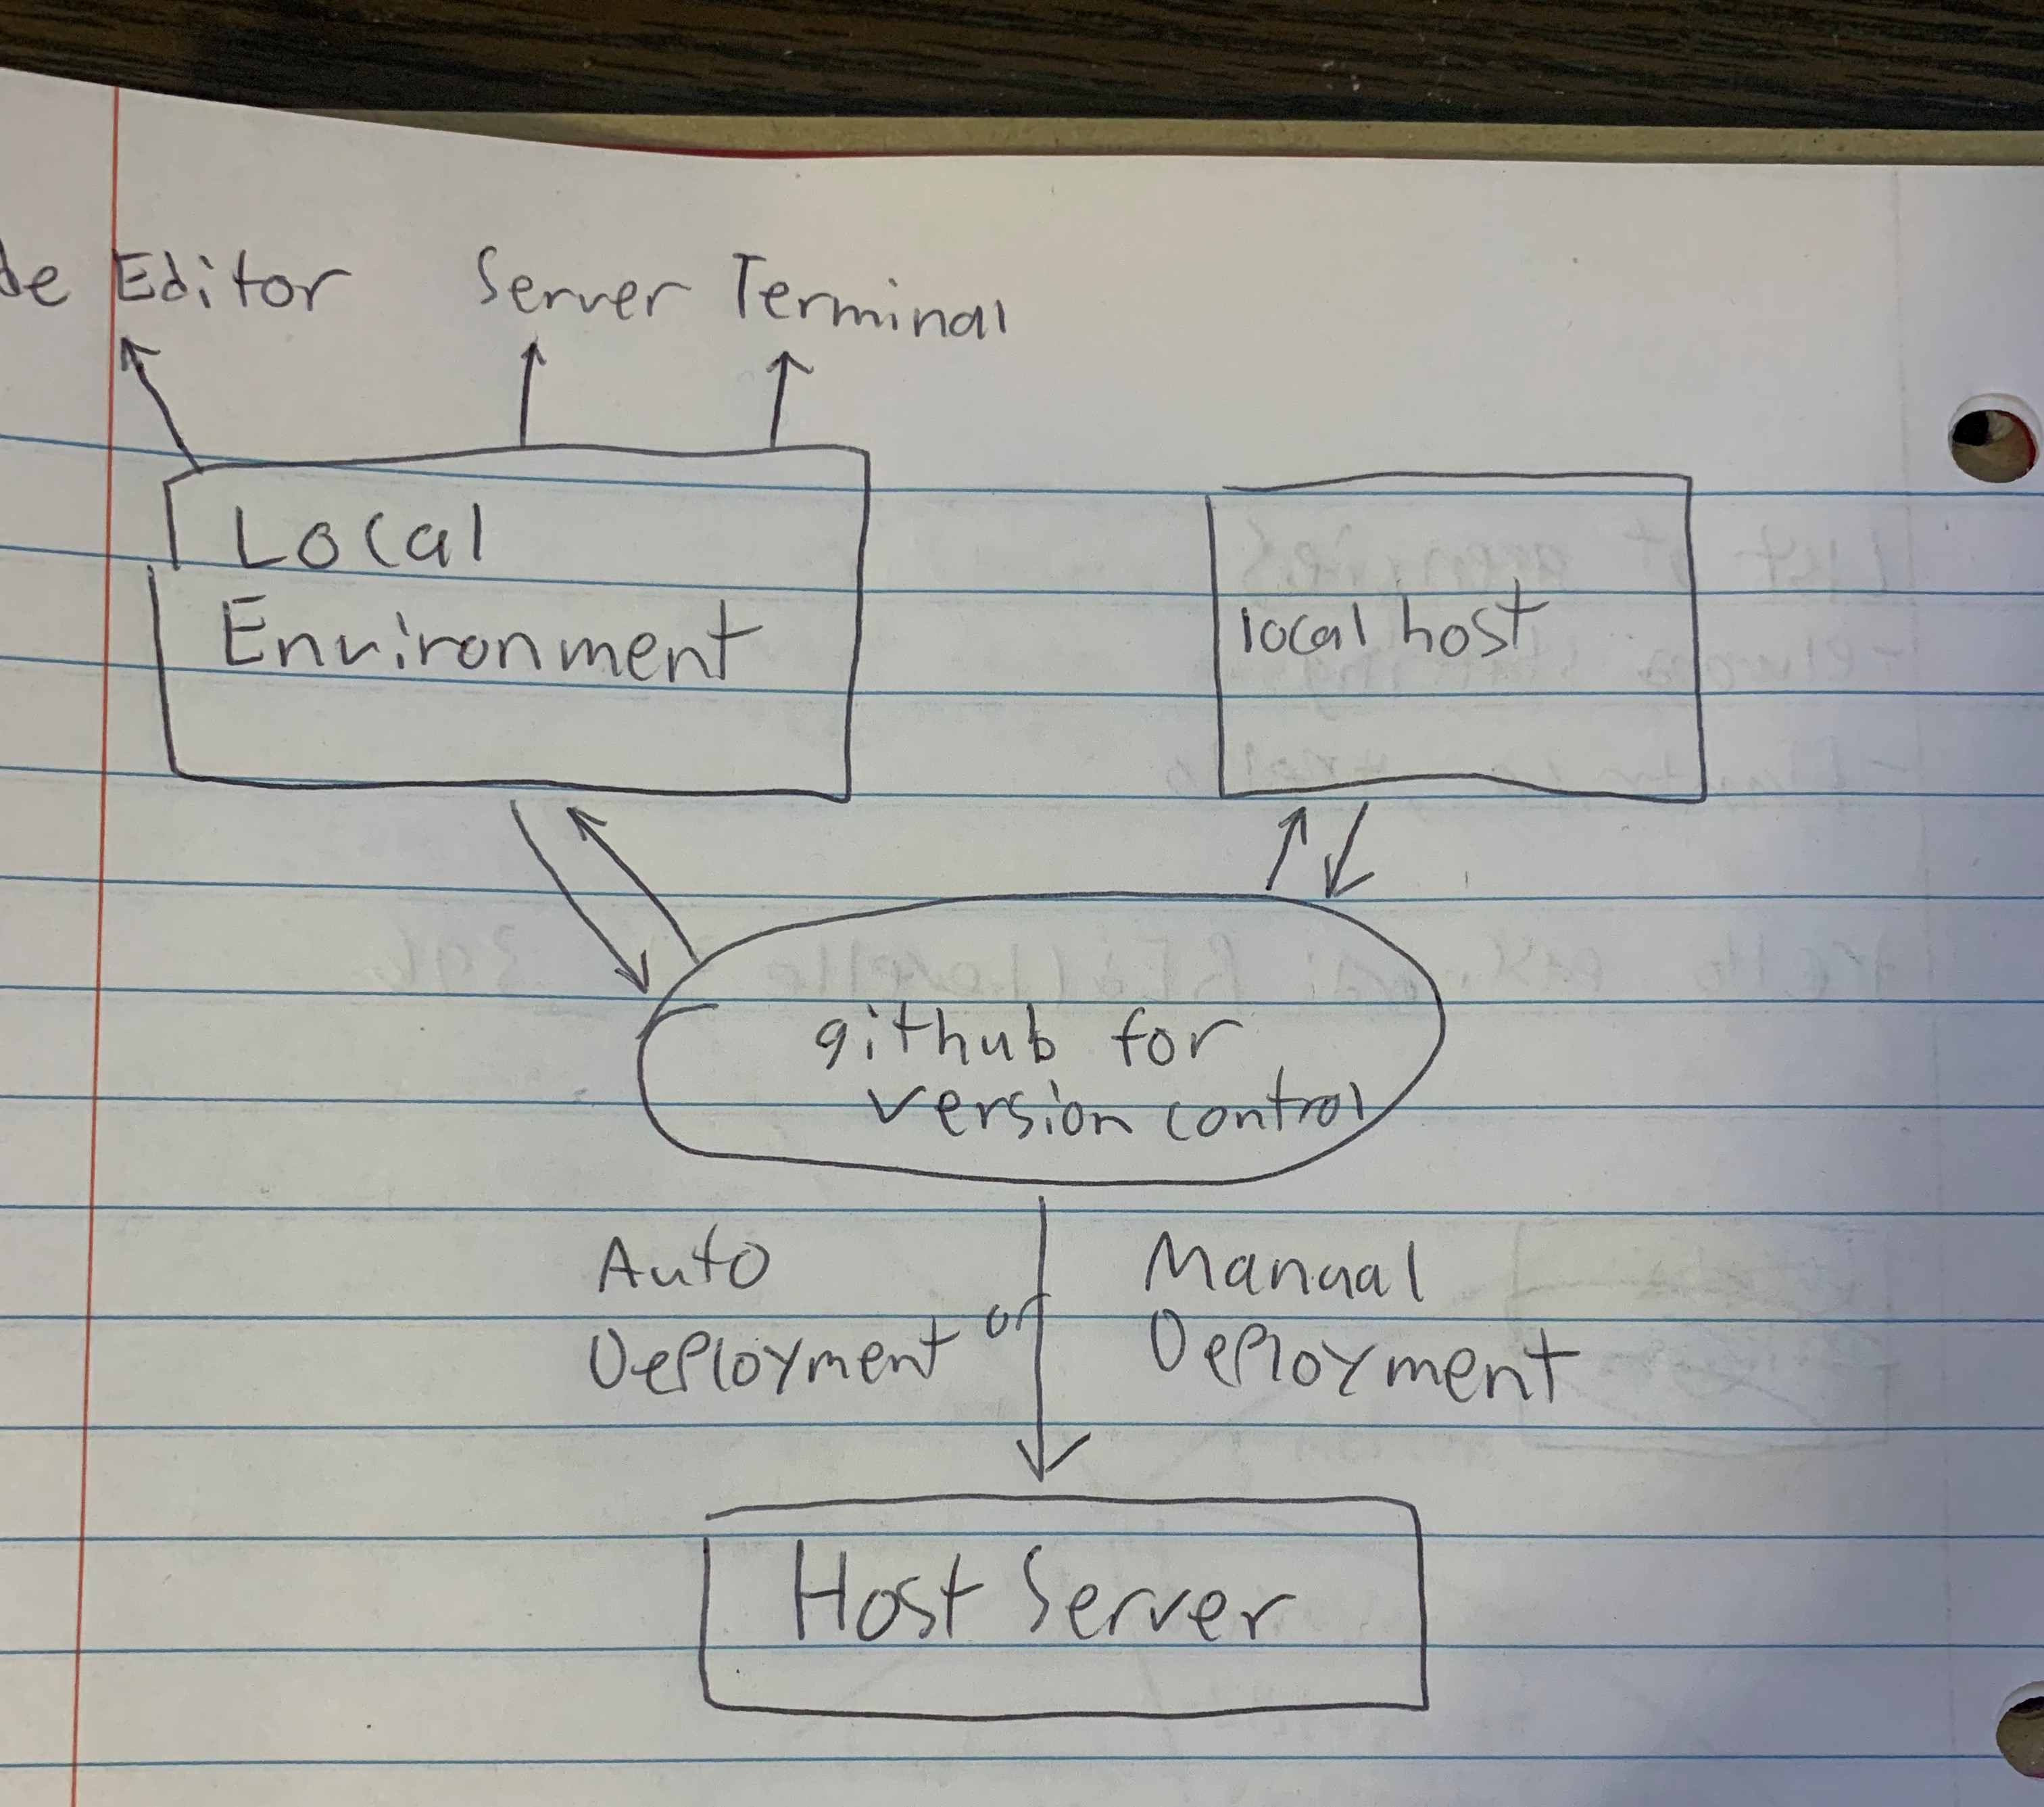 de Editor Server Terminal
Local
Environment
local host
github for
version control
Auto
Deployment
or
Manual
Deployment
Host Server